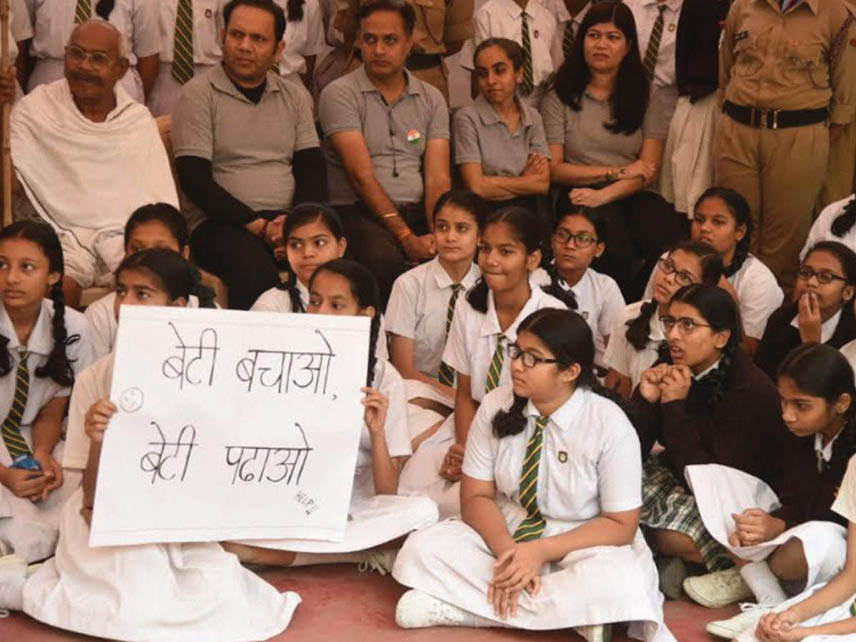 बेटी बचाओ,
बेटी पढाओ
HELP!!